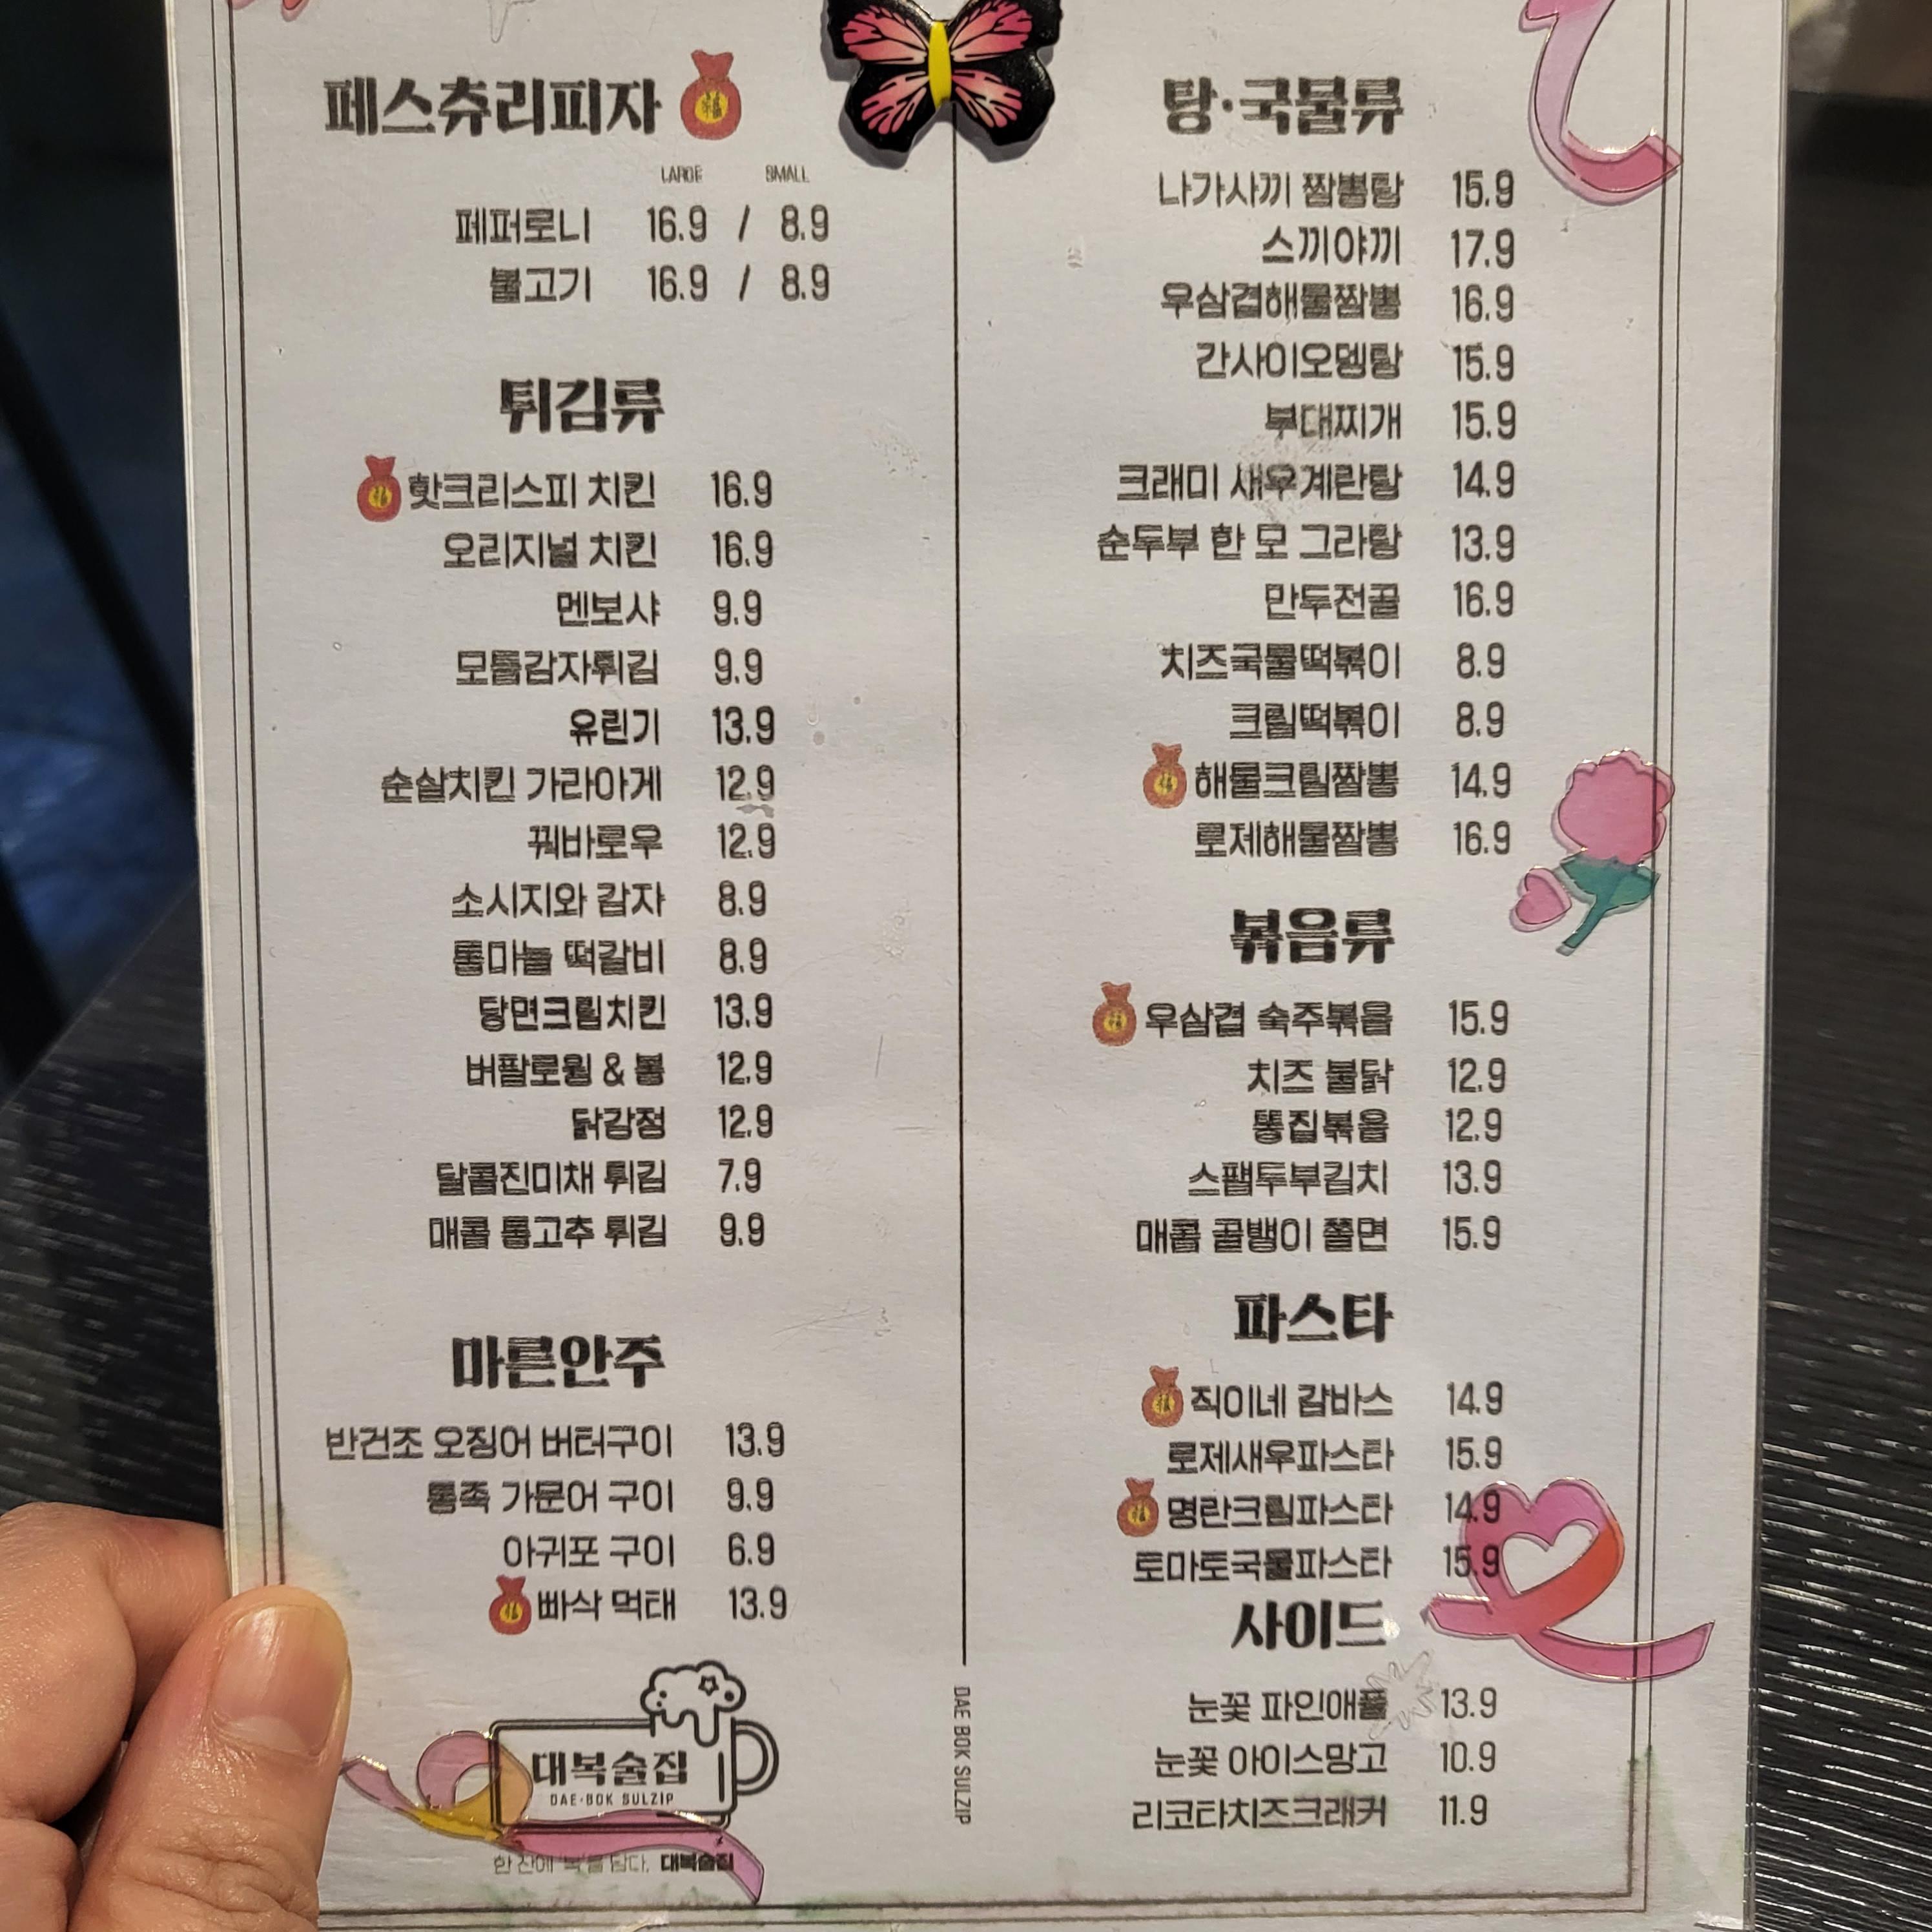 페스츄리피자
LARGE SMALL
페퍼로니 16.9 / 8.9
불고기 16.9 / 8.9
튀김류
핫크리스피 치킨 16.9
오리지널 치킨 16.9
멘보샤 9.9
모듬감자튀김 9.9
유린기 13.9
순살치킨 가라아게 12.9
꿔바로우 12.9
소시지와 감자 8.9
통마늘 떡갈비 8.9
당면크림치킨 13.9
버팔로윙 & 봉 12.9
닭강정 12.9
달콤진미채 튀김 7.9
매콤 통고추 튀김 9.9
마른안주
반건조 오징어 버터구이 13.9
통족 가문어 구이 9.9
아귀포 구이 6.9
빠삭 먹태 13.9
대복술집
DAE·BOK SULZIP
한 잔에 '복'을 담다, 대복술집
DAE BOK SULZIP
탕·국물류
나가사끼 짬뽕탕 15.9
스끼야끼 17.9
우삼겹해물짬뽕 16.9
간사이오뎅탕 15.9
부대찌개 15.9
크래미 새우계란탕 14.9
순두부 한 모 그라탕 13.9
만두전골 16.9
치즈국물떡볶이 8.9
크림떡볶이 8.9
해물크림짬뽕 14.9
로제해물짬뽕 16.9
볶음류
우삼겹 숙주볶음 15.9
치즈 불닭 12.9
똥집볶음 12.9
스팸두부김치 13.9
매콤 골뱅이 쫄면 15.9
파스타
직이네 감바스 14.9
로제새우파스타 15.9
명란크림파스타 14.9
토마토국물파스타 15.9
사이드
눈꽃 파인애플 13.9
눈꽃 아이스망고 10.9
리코타치즈크래커 11.9